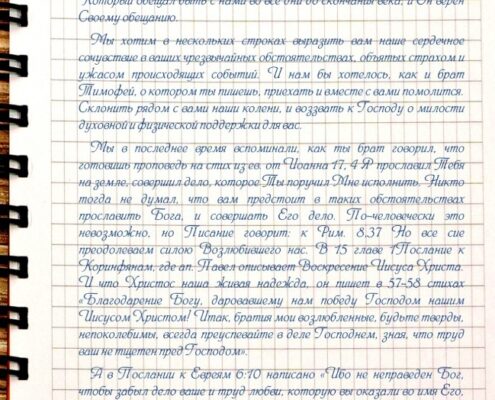 Который обещал быть с нами во все дни до скончания века, и Он верен
Своему обещанию.
Мы хотим в нескольких строках выразить вам наше сердечное
сочувствие в ваших чрезвычайных обстоятельствах, объятых страхом и
ужасом происходящих событий. И нам бы хотелось, как и брат
Тимофей, о котором ты пишешь, приехать и вместе с вами помолится.
Склонить рядом с вами наши колени, и воззвать к Господу о милости
духовной и физической поддержки для вас.
Мы в последнее время вспоминали, как ты брат говорил, что
готовишь проповедь на стих из ев. от Иоанна 17, 4 Я прославил Тебя
на земле, совершил дело, которое Ты поручил Мне исполнить. Никто
тогда не думал, что вам предстоит в таких обстоятельствах
прославить Бога, и совершать Его дело. По-человечески это
невозможно, но Писание говорит: к Рим. 8,37 Но все сие
преодолеваем силою Возлюбившего нас. В 15 главе 1Послание к
Коринфянам, где ап. Павел описывает Воскресение Иисуса Христа.
И что Христос наша живая надежда, он пишет в 57-58 стихах
«Благодарение Богу, даровавшему нам победу Господом нашим
Иисусом Христом! Итак, братия мои возлюбленные, будьте тверды,
непоколебимы, всегда преуспевайте в деле Господнем, зная, что труд
ваш не тщетен пред Господом».
А в Послании к Евреям 6:10 написано «Ибо не неправеден Бог,
чтобы забыл дело ваше и труд любви, которую вы оказали во имя Его,